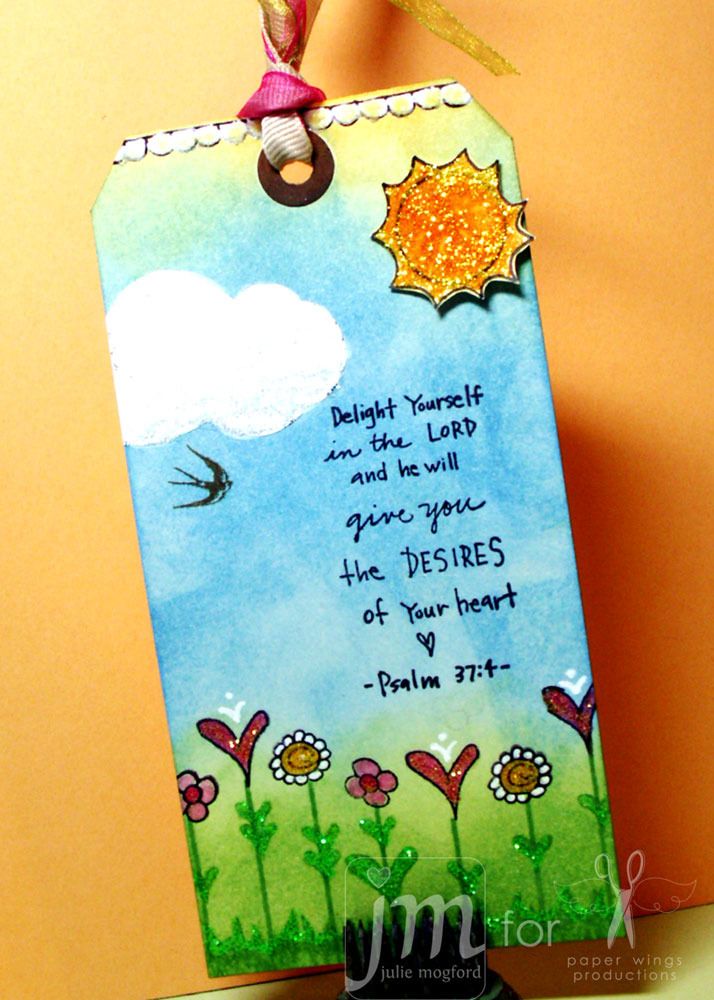 Delight Yourself
in the LORD
and he will
give you
the DESIRES
of Your heart
-Psalm 37:4-
jm for
julie mogford
paper wings
productions